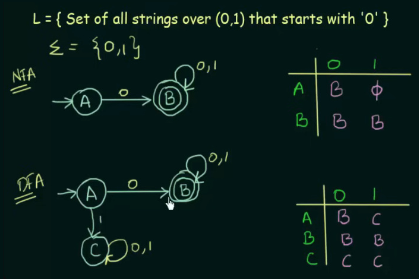 L = { Set of all strings over (0,1) that starts with '0' }
Σ = {0,1}
NFA
A 0 B 0,1
0 1
A B ϕ
B B B
DFA
A 0 B 0,1
1
C 0,1
0 1
A B C
B B B
C C C